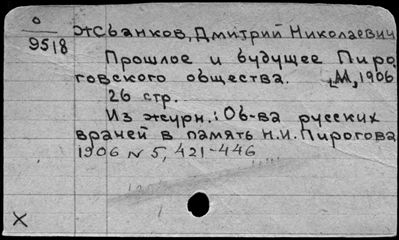 о
9518
Жбанков, Дмитрий Николаевич
Прошлое и будущее Пиро
говского общества. [М, 1906
26 стр.
Из журн.: Об-ва русских
врачей в память Н.И. Пирогова
1906 N 5, 421-446
X